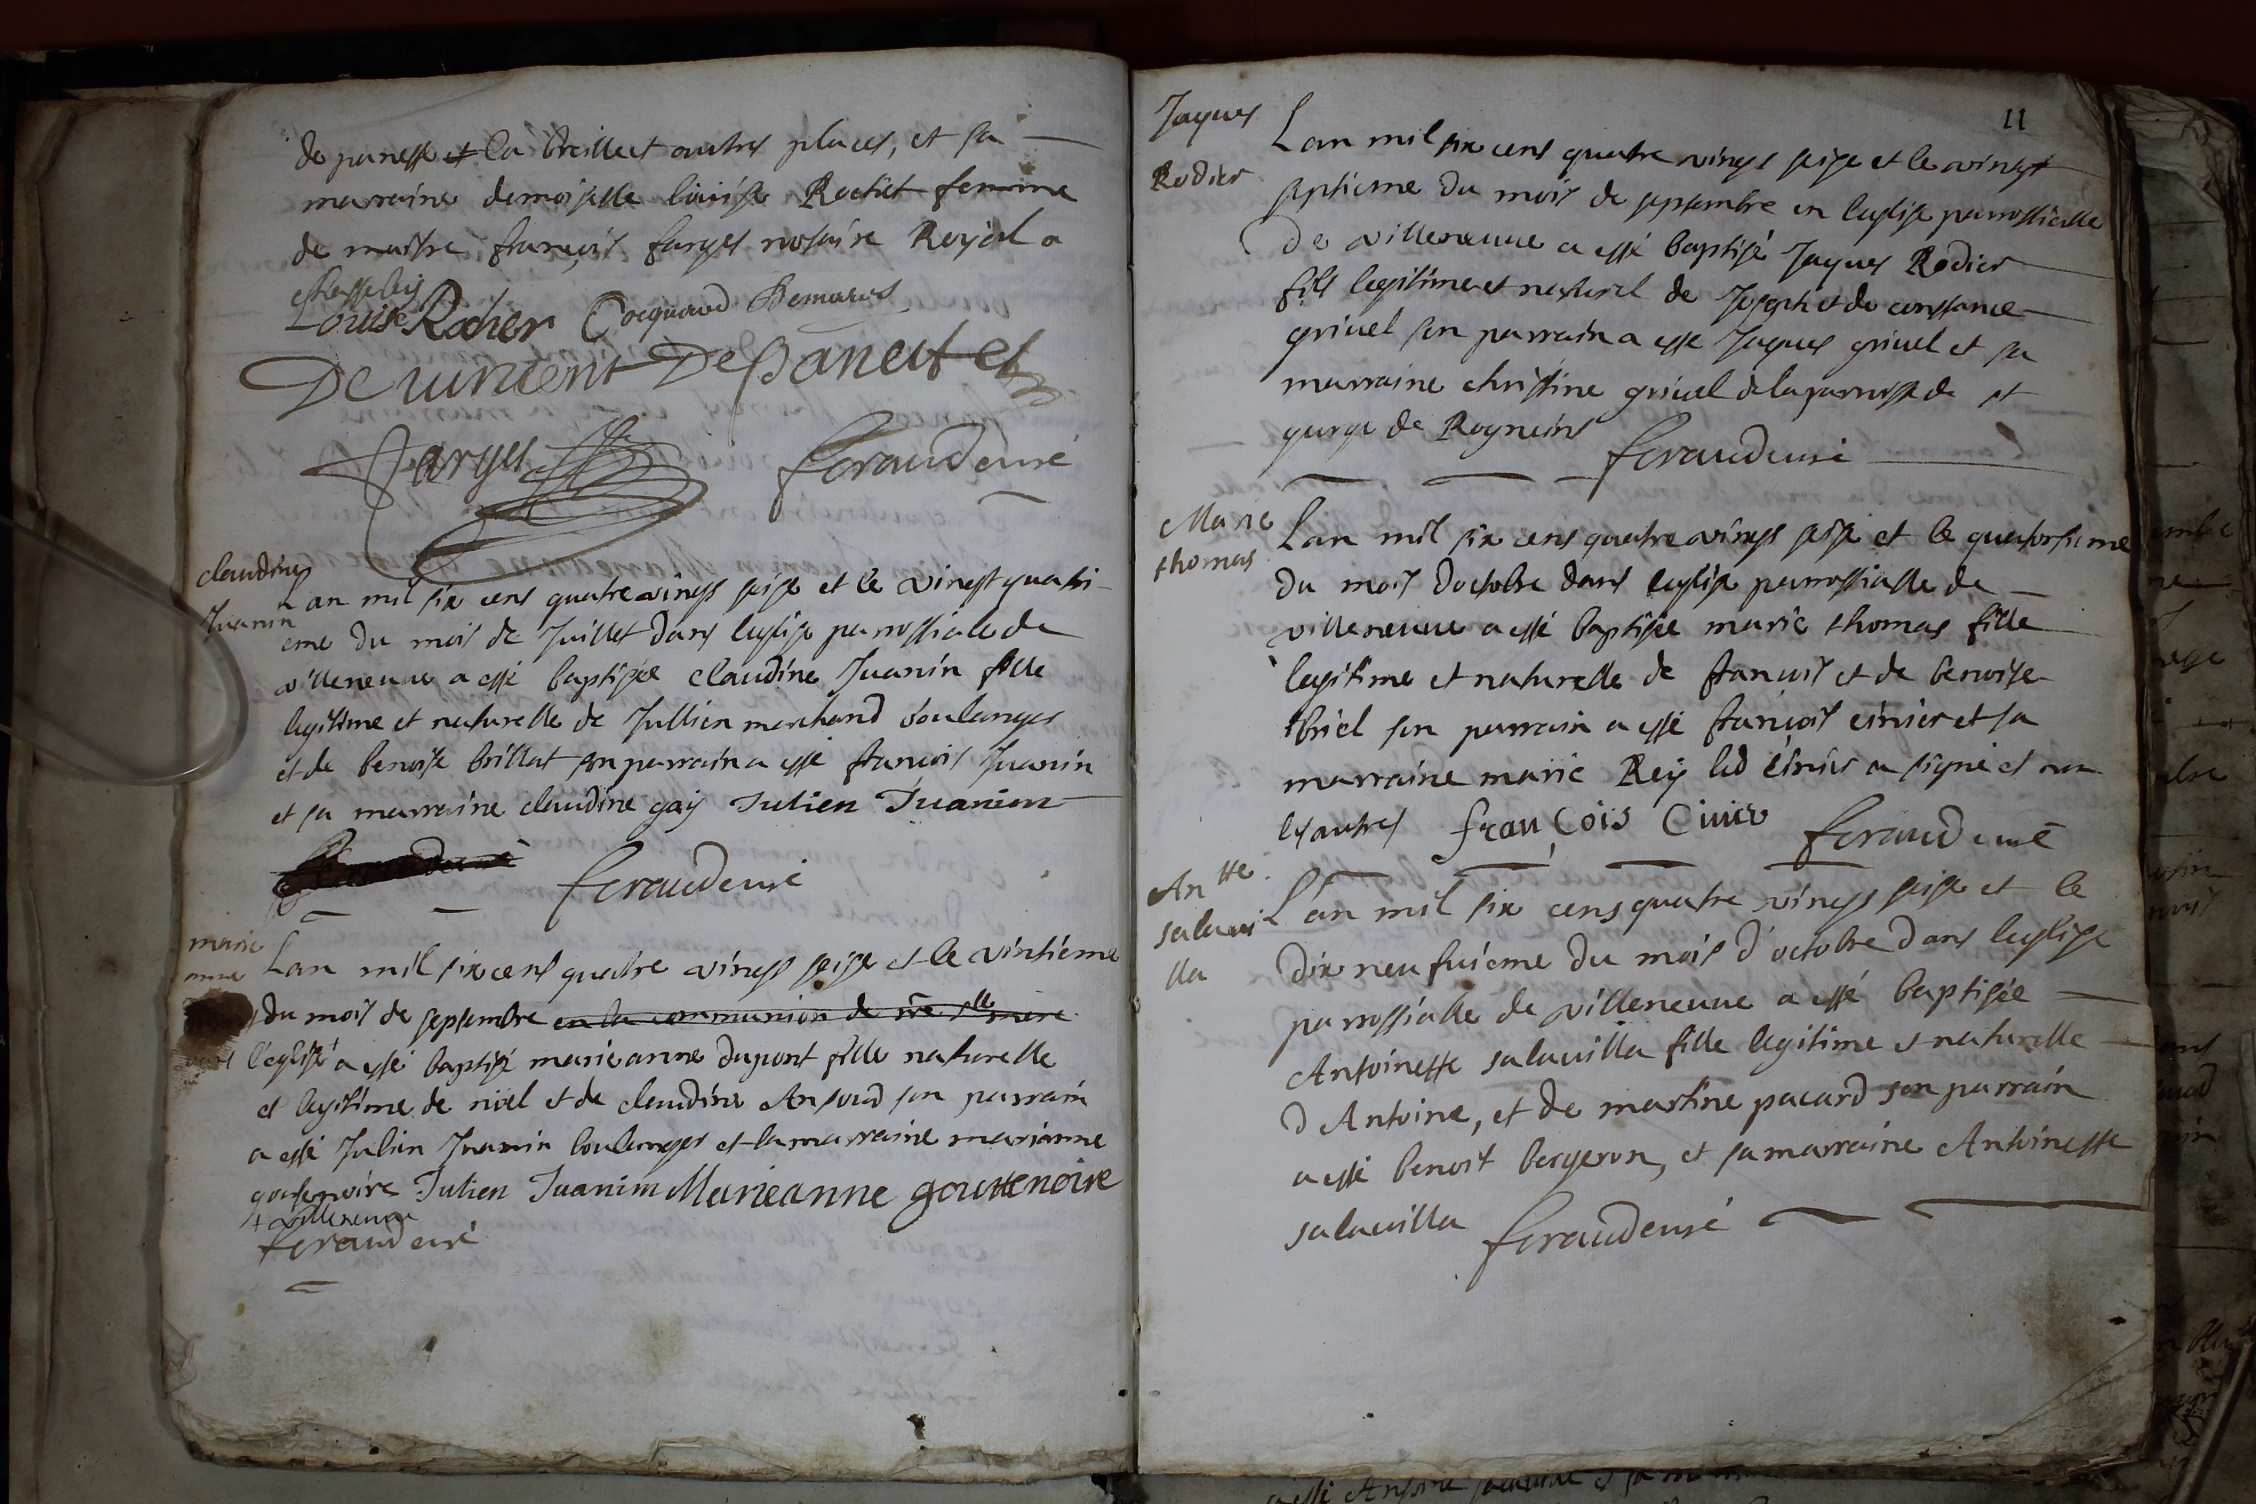 de panesse et la breille et autres places, et sa
marraine demoiselle louise Rochet femme
de maistre françois farges notaire Royal a
chasselay
Louise Rocher Cocquard Demarest
De vincent De panette
farges feraud curé
claudine
Juanin
Lan mil six cens quatre vings seise et le vingt quatri-
eme du mois de Juillet dans leglise parrossiale de
villeneuve a esté baptisée claudine Juanin fille
legitime et naturelle de Jullien marchand boulanger
et de benoise brillat son parrain a esté françois Juanin
et sa marraine claudine gay Julien Juanin
feraud curé
marie
anne
Lan mil six cens quatre vings seise et le vintieme
du mois de septembre en la communion de nre ste mere
l'eglise a esté baptisé marie anne dupont fille naturelle
et legitime de noel et de claudine Ansoud son parrain
a esté Julien Juanin boulenger et la marraine marianne
goutenoire Julien Juanin Marieanne gouttenoire
+ villeneuve
feraud curé
11
Jaques
Rodier
Lan mil six cens quatre vings seise et le vingt
septieme du mois de septembre en leglise parrossialle
de villeneuve a esté baptisé Jaques Rodier
fils legitime et naturel de Joseph et de constance
grivel son parrain a esté Jaques grivel et sa
marraine christine grivel de la parroisse de st
gurge de Rogneins
feraud curé
Marie
thomas
Lan mil six cens quatre vings seise et le quatorsieme
du mois doctobre dans leglise parrossialle de
villeneuve a esté baptisée marie thomas fille
legitime et naturelle de françois et de benoise
briel son parrain a esté françois civier et sa
marraine marie Rey led civier a signé et non
les autres françois Civier feraud curé
Antte
salavi
lla
L'an mil six cens quatre vings seise et le
dix neufvieme du mois d'octobre dans leglise
parrossialle de villeneuve a esté baptisée
Antoinette salavilla fille legitime et naturelle
d Antoine, et de martine pacard son parrain
a esté benoit bergeron, et sa marraine Antoinette
salavilla feraud curé